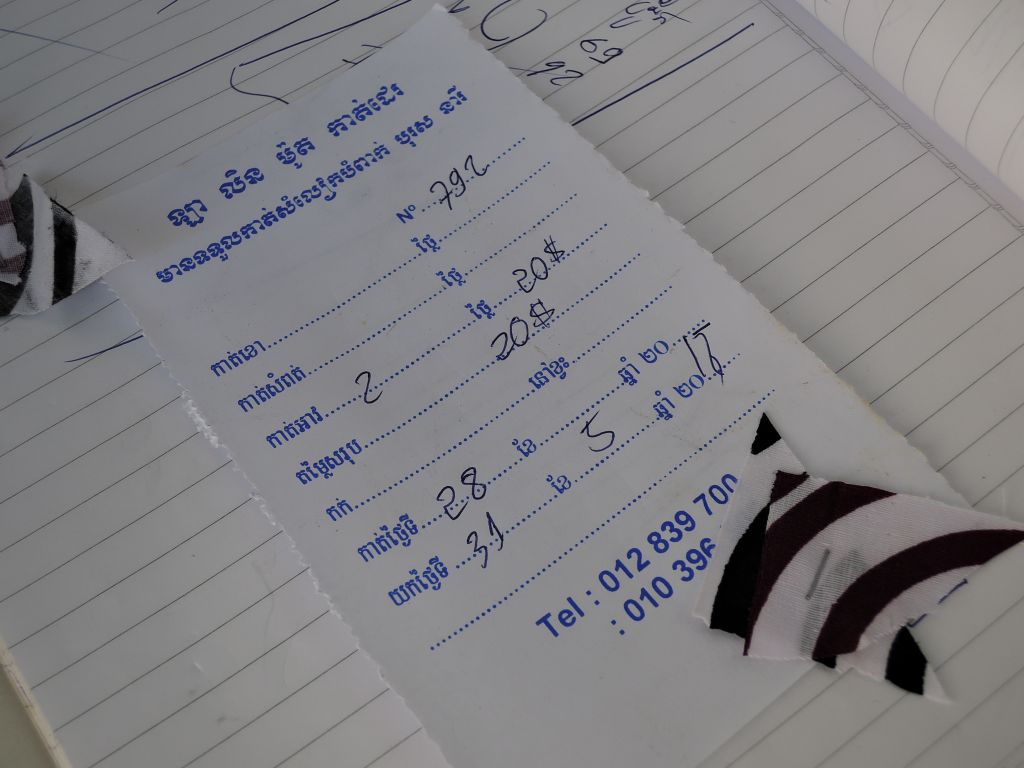 ឡា លិន ម៉ូត កាត់ដេរ
មានទទួលកាត់សំលៀកបំពាក់ បុរស នារី
Nº 792
កាត់ខោ ថ្លៃ
កាត់សំពត់ ថ្លៃ
កាត់អាវ 2 ថ្លៃ 20$
តម្លៃសរុប 20$
កក់ នៅខ្វះ
កាត់ថ្ងៃទី 28 ខែ ឆ្នាំ ២០
យកថ្ងៃទី 31 ខែ 5 ឆ្នាំ ២០ 17
Tel : 012 839 700
: 010 396